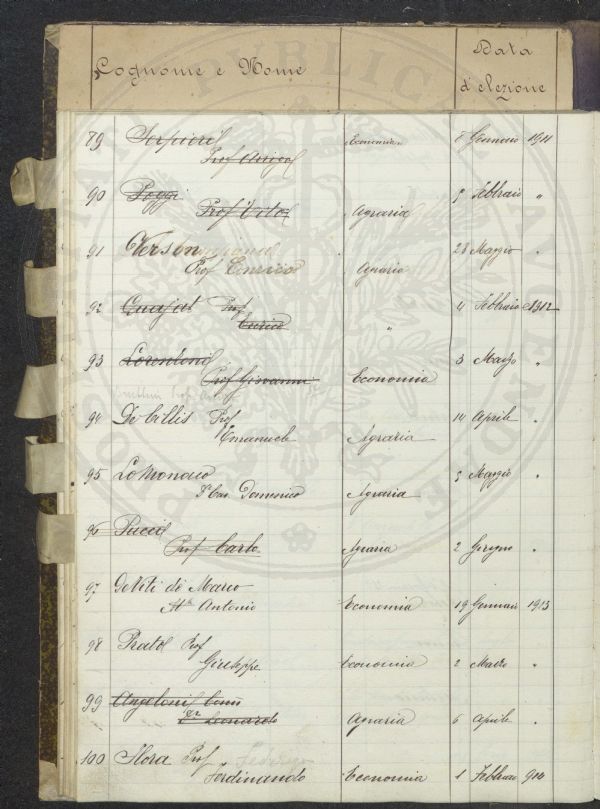 Cognome e Nome Data
d'elezione
89 Serpieri Economia 8 Gennaio 1911
Prof Arrigo
90 Poggi 5 Febbraio "
Prof Tito Agraria
91 Verson 28 Maggio "
Prof Enrico Agraria
92 Quajat Prof 4 Febbraio 1912
Enrico "
93 Lorenzoni 3 Marzo "
Prof Giovanni Economia
94 De Cillis Prof 14 Aprile "
Emanuele Agraria
95 Lo Monaco 5 Maggio "
Domenico Agraria
96 Pucci
Prof Carlo Agraria 2 Giugno "
97 De Viti de Marco
Mse Antonio Economia 19 Gennaio 1913
98 Prato Prof
Giuseppe Economia 2 Marzo "
99 Angeloni Comm
Leonardo Agraria 6 Aprile "
100 Flora Prof Federigo
Ferdinando Economia 1 Febbraio 914